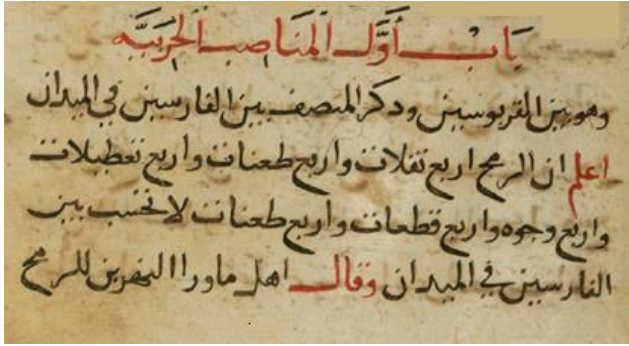 باب أول المناصب الحربيه
وهو بين القربوسين وذكر المنصف بين الفارسين في الميدان
اعلم ان الرمح اربع نقلات واربع طعنات واربع تعطيلات
واربع وجوه واربع قطعات واربع طعنات لا تحتسب بين
الفارسين في الميدان وقال اهل ماورا النهرين للرمح